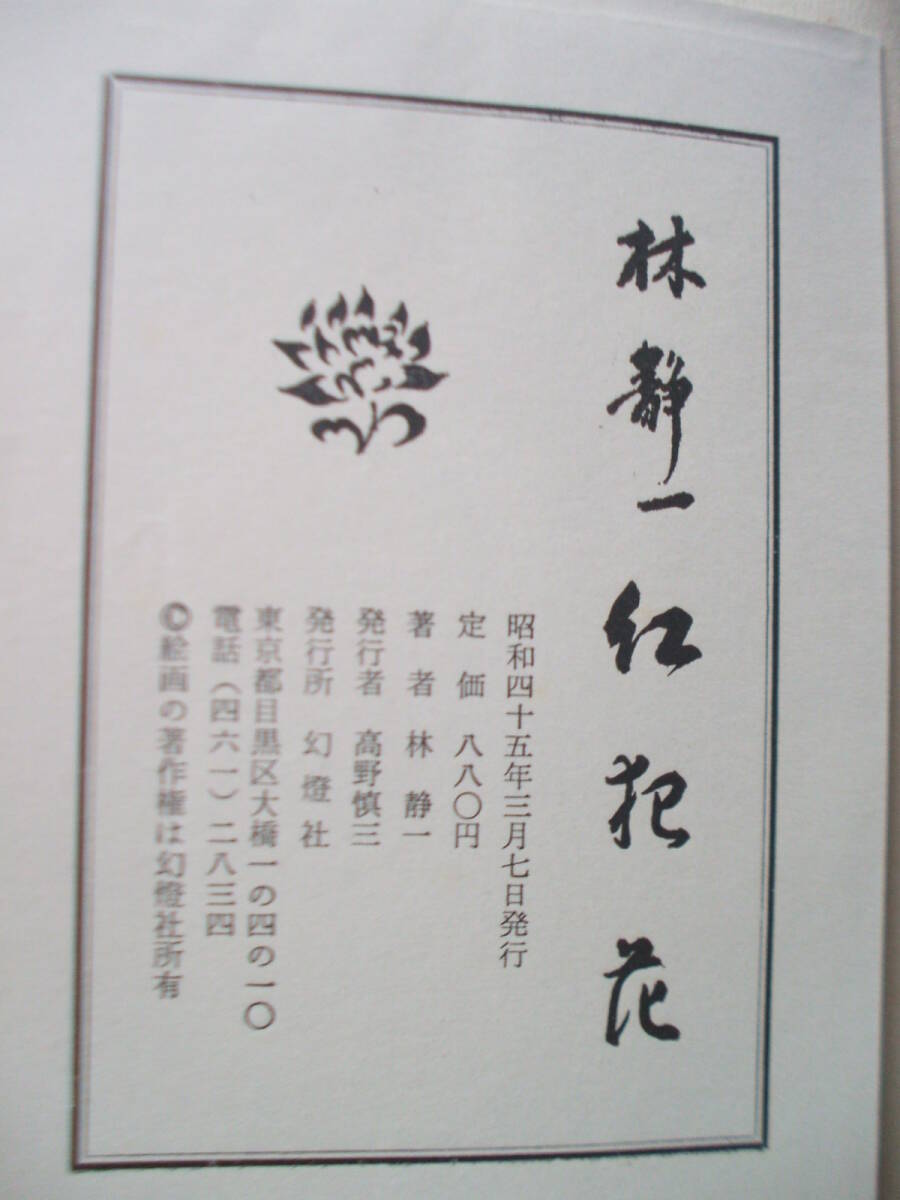 林静一 紅犯花
昭和四十五年三月七日発行
定価 八八〇円
著者 林静一
発行者 高野慎三
発行所 幻燈社
東京都目黒区大橋一の四の一〇
電話(四六一)二八三四
©絵画の著作権は幻燈社所有